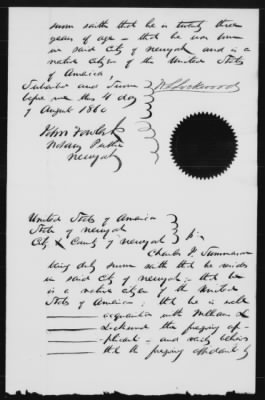 sworn saith that he is twenty three
years of age – that he was born
in said City of Newyork and is a
native citizen of the United States
of America.
Subscribed and Sworn
before me this 4 day
of August 1860
Lockwood
John
Notary Public
Newyork
United States of America
State of Newyork
City & County of Newyork ss:
Charles P.
being duly sworn saith that he resides
in said City of Newyork; that he
is a native citizen of the United
States of America; that he is well
acquainted with William L
Lockwood the foregoing ap-
plicant – and verily believes
that the foregoing affidavit by